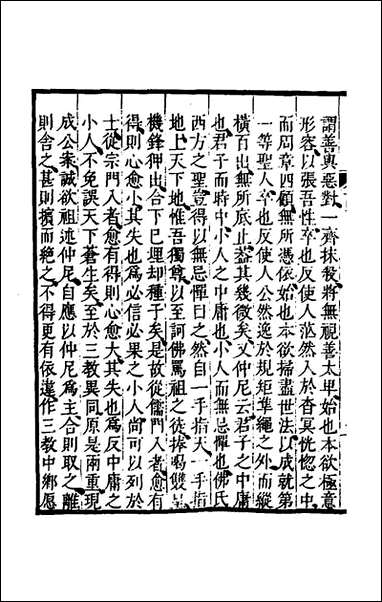 謂善與惡對一齊抹殺將無視善太卑始也本欲極意
形容以張吾性卒也反使人茫然入於杳冥恍惚之中
而周章四顧無所憑依始也本欲掃盡世法以成就第
一等聖人卒也反使人公然逸於規矩準繩之外而縱
橫百出無所底止葢其幾微矣又仲尼云君子之中庸
也君子而時中小人之中庸也小人而無忌憚也佛氏
西方之聖豈得以無忌憚目之然自一手指天一手指
地上天下地惟吾獨尊以至訶佛罵祖之徒捧喝雙呈
機鋒狎出合下已埋却種子矣是故從儒門入者愈有
得則心愈小其失也為必信必果之小人尚可以列於
士從宗門入者愈有得則心愈大其失也為反中庸之
小人不免誤天下蒼生矣至於三教異同原是兩重現
成公案誠欲祖述仲尼自應以仲尼為主合則取之離
則舍之甚則擯而絕之不得更有依違作三教中鄉愿